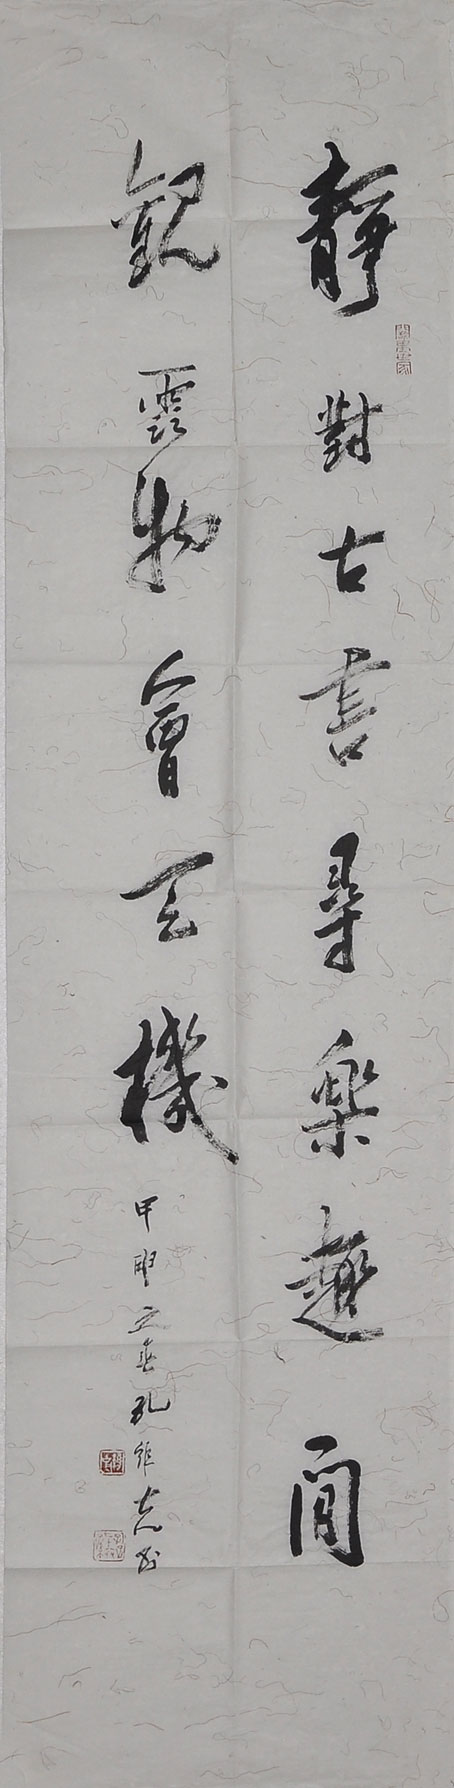 靜對古書尋樂趣閒
觀雲物會天機甲申立春孔維克書